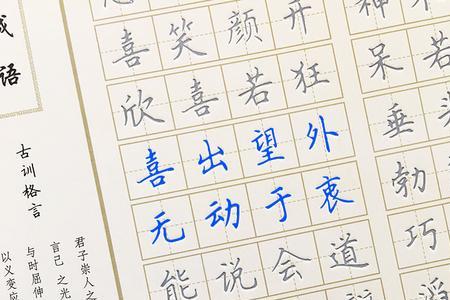 成语
古训格言
君子崇人之
言己之光
与时屈伸
以义变应
喜笑颜开
欣喜若狂
喜出望外
无动于衷
能说会道
神
呆若
垂头
勃
巧
滔